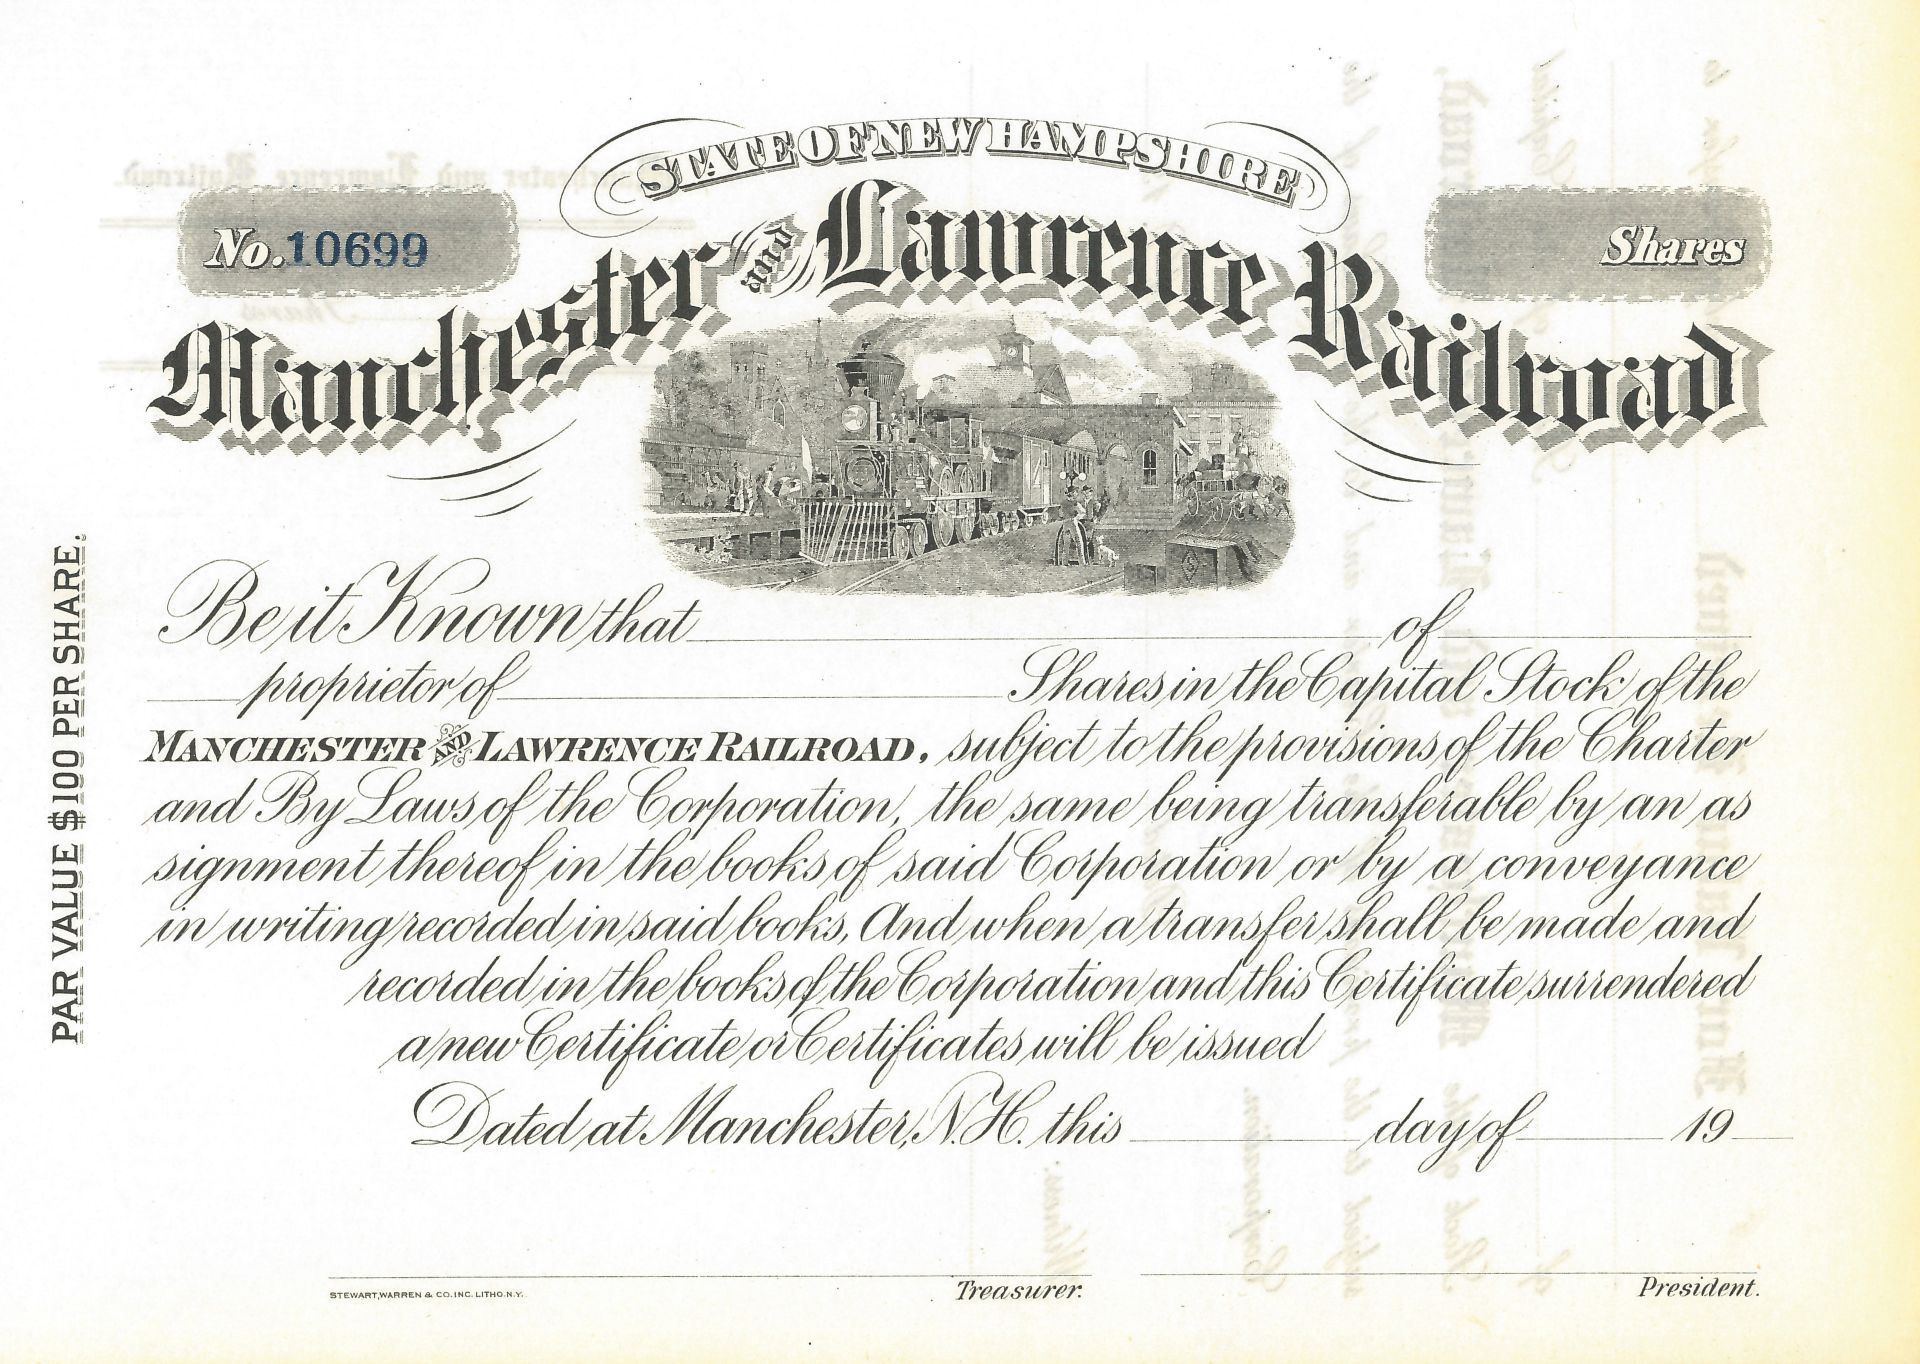 STATE OF NEW HAMPSHIRE
No. 10699
Shares
Manchester and Lawrence Railroad
PAR VALUE $100 PER SHARE.
Be it Known that of
proprietor of Shares in the Capital Stock of the
MANCHESTER AND LAWRENCE RAILROAD, subject to the provisions of the Charter
and By Laws of the Corporation, the same being transferable by an as
signment thereof in the books of said Corporation or by a conveyance
in writing recorded in said books, And when a transfer shall be made and
recorded in the books of the Corporation and this Certificate surrendered
a new Certificate or Certificates will be issued
Dated at Manchester, N.H. this day of 19
Treasurer.
President.
STEWART, WARREN & CO. INC. LITHO. N.Y.